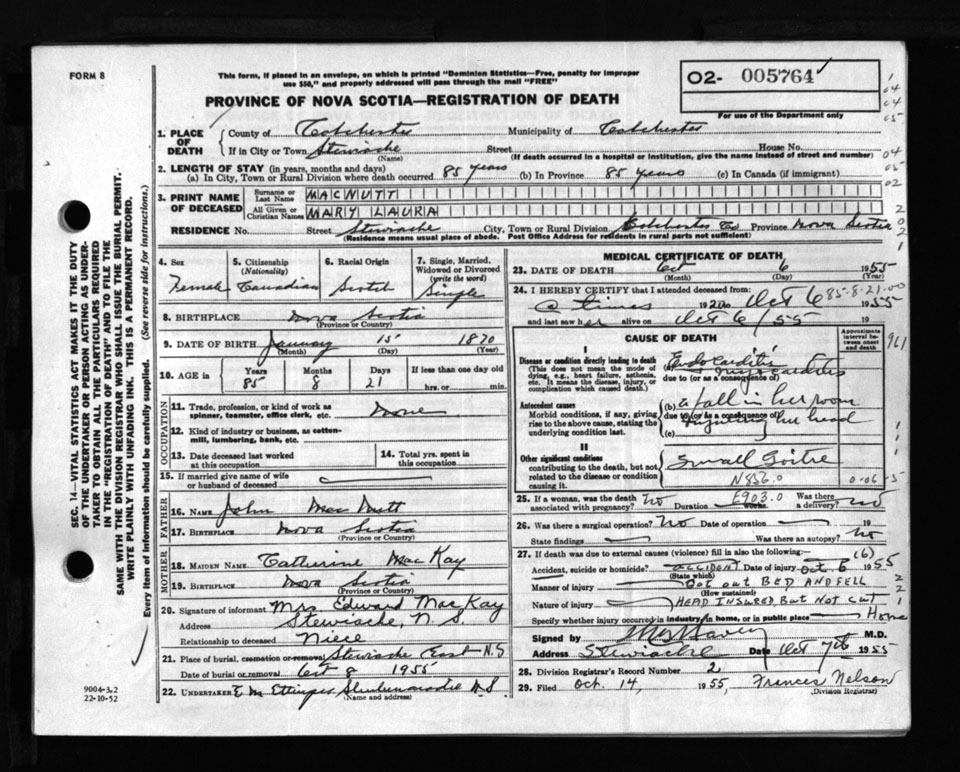 FORM 8
This form, if placed in an envelope, on which is printed "Dominion Statistics—Free, penalty for improper
use $50," and properly addressed will pass through the mail "FREE"
02- 005764
PROVINCE OF NOVA SCOTIA—REGISTRATION OF DEATH
For use of the Department only
1. PLACE OF DEATH
County of Colchester Municipality of Colchester
If in City or Town Stewiacke Street House No.
(Name) (If death occurred in a hospital or institution, give the name instead of street and number)
2. LENGTH OF STAY (in years, months and days)
(a) In City, Town or Rural Division where death occurred 85 years (b) In Province 85 years (c) In Canada (if immigrant)
3. PRINT NAME OF DECEASED
Surname or Last Name MACNUTT
All Given or Christian Names MARY LAURA
RESIDENCE No. Street Stewiacke City, Town or Rural Division Colchester Co Province Nova Scotia
(Residence means usual place of abode. Post Office Address for residents in rural parts not sufficient)
4. Sex Female
5. Citizenship (Nationality) Canadian
6. Racial Origin Scotch
7. Single, Married, Widowed or Divorced (write the word) Single
8. BIRTHPLACE Nova Scotia
(Province or Country)
9. DATE OF BIRTH January 15 1870
(Month) (Day) (Year)
10. AGE in Years Months Days If less than one day old
85 8 21 hrs. or min.
OCCUPATION
11. Trade, profession, or kind of work as spinner, teamster, office clerk, etc. None
12. Kind of industry or business, as cotton-mill, lumbering, bank, etc.
13. Date deceased last worked at this occupation
14. Total yrs. spent in this occupation
15. If married give name of wife or husband of deceased
FATHER
16. NAME John MacNutt
17. BIRTHPLACE Nova Scotia
(Province or Country)
MOTHER
18. MAIDEN NAME Catherine MacKay
19. BIRTHPLACE Nova Scotia
(Province or Country)
20. Signature of informant Mrs. Edward MacKay
Address Stewiacke, N.S.
Relationship to deceased Niece
21. Place of burial, cremation or removal Stewiacke East N.S
Date of burial or removal Oct 8 1955
22. UNDERTAKER E M Ettinger Shubenacadie N S
(Name and address)
MEDICAL CERTIFICATE OF DEATH
23. DATE OF DEATH Oct 6 1955
24. I HEREBY CERTIFY that I attended deceased from:
@ times 1920 to Oct 6 1955
85-8-21-00
and last saw her alive on Oct 6/55 19
CAUSE OF DEATH
Approximate interval between onset and death
961
I
Disease or condition directly leading to death
(This does not mean the mode of dying, e.g., heart failure, asthenia, etc. It means the disease, injury, or complication which caused death.)
Endocarditis
myocarditis
due to (or as a consequence of)
Antecedent causes
Morbid conditions, if any, giving rise to the above cause, stating the underlying condition last.
(b) a fall in her room
due to (or as a consequence of)
injuring her head
(c)
II
Other significant conditions
contributing to the death, but not related to the disease or condition causing it.
Small Goitre
N856.0
0-06-5
25. If a woman, was the death associated with pregnancy? no Duration weeks Was there a delivery? no
E903.0
26. Was there a surgical operation? No Date of operation 19
State findings Was there an autopsy? No
27. If death was due to external causes (violence) fill in also the following:
(6)
Accident, suicide or homicide? ACCIDENT Date of injury Oct. 6 1955
(State which)
Manner of injury Got out BED AND FELL
(How sustained)
Nature of injury HEAD INJURED But Not CUT
Specify whether injury occurred in industry, in home, or in public place Home
Signed by M.D.
Address Stewiacke Date Oct 7th 1955
28. Division Registrar's Record Number 2
29. Filed Oct. 14, 1955, Frances Nelson
(Division Registrar)
SEC. 14—VITAL STATISTICS ACT MAKES IT THE DUTY
OF THE UNDERTAKER OR PERSON ACTING AS UNDER-
TAKER TO OBTAIN ALL THE PARTICULARS REQUIRED
IN THE "REGISTRATION OF DEATH" AND TO FILE THE
SAME WITH THE DIVISION REGISTRAR WHO SHALL ISSUE THE BURIAL PERMIT.
WRITE PLAINLY WITH UNFADING INK. THIS IS A PERMANENT RECORD.
Every item of information should be carefully supplied. (See reverse side for instructions.)
9004-3,2
22-10-52